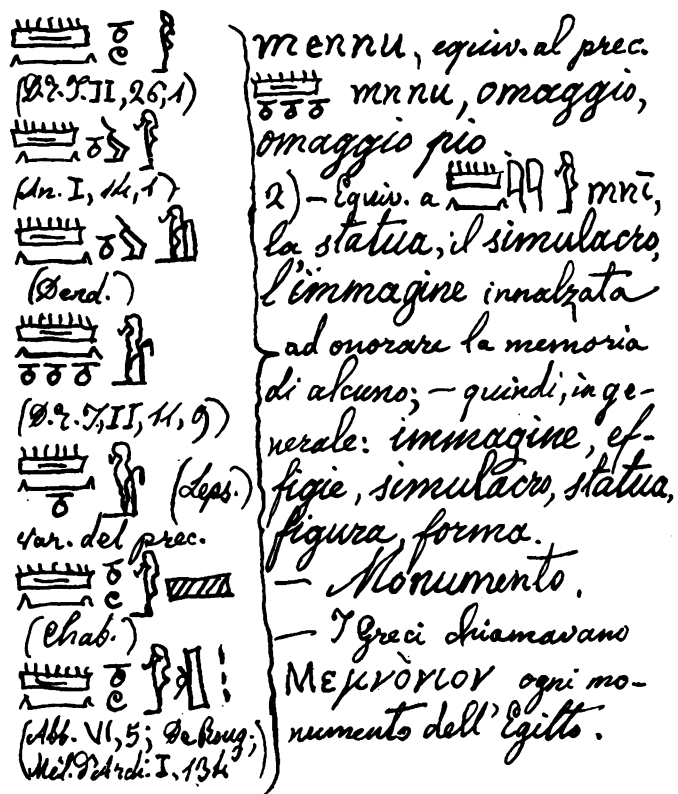 (D.R.T. II, 26, 1)
(An. I, 14, 1)
(Dend.)
(D.R.T, II, 11, 9)
(Leps.)
var. del prec.
(Chab.)
(Abb. VI, 5; De Roug;
Mél. d'Arch. I, 134
mennu, equiv. al prec.
mnnu, omaggio,
omaggio pio
2) – Equiv. a mnī,
la statua, il simulacro,
l'immagine innalzata
ad onorare la memoria
di alcuno; – quindi, in ge-
nerale: immagine, ef-
figie, simulacro, statua,
figura, forma.
– Monumento.
– I Greci chiamavano
Μεμνὸνιον ogni mo-
numento dell'Egitto.